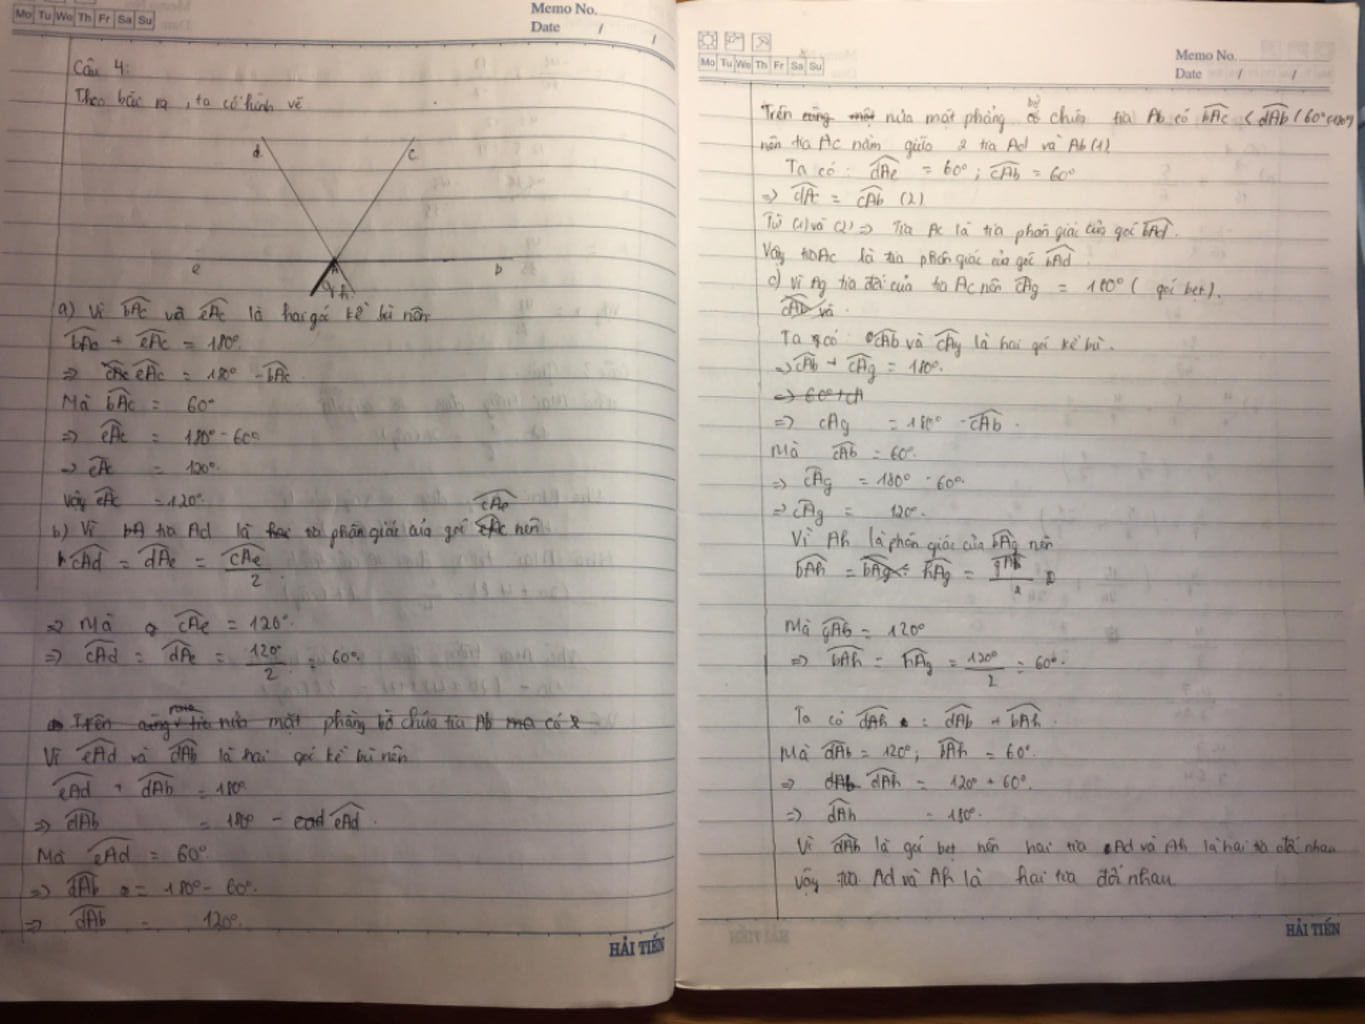 Mo Tu We Th Fr Sa Su
Memo No.
Date / /
Câu 4:
Theo bài ra, ta có hình vẽ
d
c
e
b
A
g h
a) Vì bAc và eAc là hai góc kề bù nên
bAc + eAc = 180°
=> eAc = 180° - bAc
Mà bAc = 60°
=> eAc = 180° - 60°
=> eAc = 120°
Vậy eAc = 120°
cAe
b) Vì tia Ad là tia phân giác của góc nên
cAd = dAe = cAe / 2
=> Mà cAe = 120°
=> cAd = dAe = 120° / 2 = 60°
Trên cùng nửa mặt phẳng bờ chứa tia Ab có
Vì eAd và dAb là hai góc kề bù nên
eAd + dAb = 180°
=> dAb = 180° - eAd
Mà eAd = 60°
=> dAb = 180° - 60°
=> dAb = 120°
HẢI TIẾN
Mo Tu We Th Fr Sa Su
Memo No.
Date / /
Trên nửa mặt phẳng bờ chứa tia Ab có bAc < dAb (60°
nên tia Ac nằm giữa 2 tia Ad và Ab (1)
Ta có: dAe = 60°; cAb = 60°
=> dAc = cAb (2)
Từ (1) và (2) => Tia Ac là tia phân giác của góc bAd.
Vậy tia Ac là tia phân giác của góc bAd
c) Vì Ag tia đối của tia Ac nên cAg = 180° (góc bẹt).
Ta có: cAb và cAg là hai góc kề bù.
=> cAb + cAg = 180°
=> cAg = 180° - cAb.
Mà cAb = 60°
=> cAg = 180° - 60°
=> cAg = 120°
Vì Ah là phân giác của bAg nên
bAh = hAg = gAb / 2
Mà gAb = 120°
=> bAh = hAg = 120° / 2 = 60°.
Ta có dAh = dAb + bAh.
Mà dAb = 120°; bAh = 60°.
=> dAh = 120° + 60°.
=> dAh = 180°.
Vì dAh là góc bẹt nên hai tia Ad và Ah là hai tia đối nhau
Vậy tia Ad và Ah là hai tia đối nhau
HẢI TIẾN